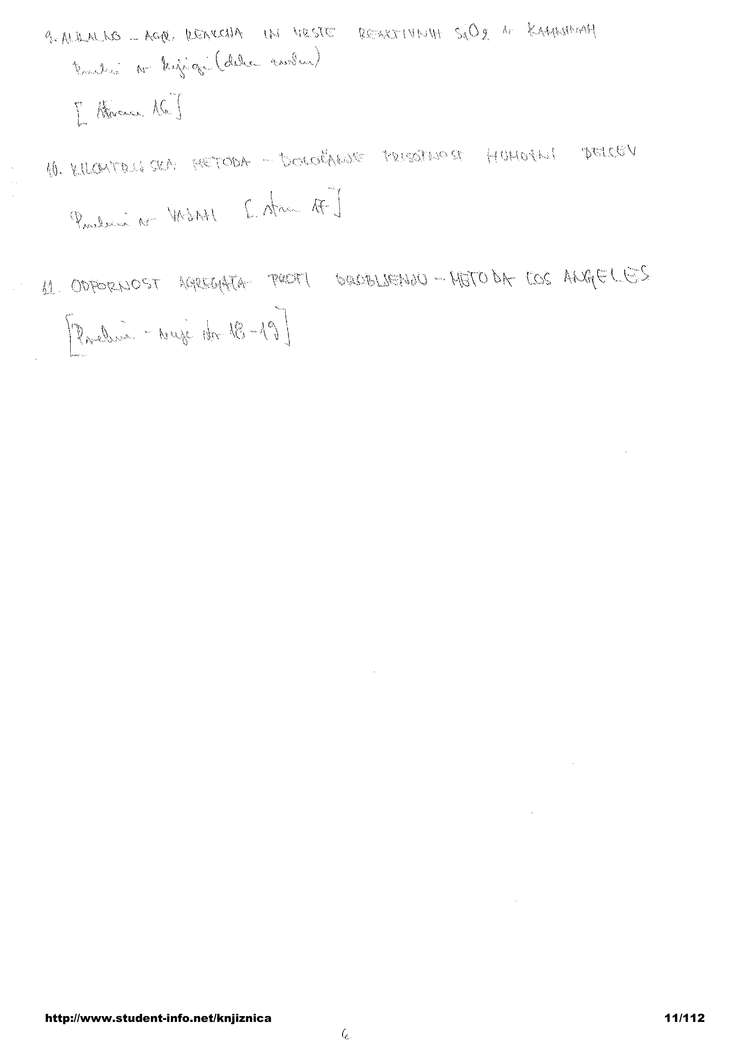 9. ALKALNO - AGR. REAKCIJA IN VRSTE REAKTIVNIH SiO2 v KAMNINAH
v knjigi (debe
[Stran 16]
10. KOLORIMETRIJSKA METODA - DOLOČANJE PRISOTNOST HUMOZNI DELCEV
v VAJAH [stran 17]
11. ODPORNOST AGREGATA PROTI DROBLJENJU - METODA LOS ANGELES
[Preberi - vaje str 18-19]
http://www.student-info.net/knjiznica
11/112